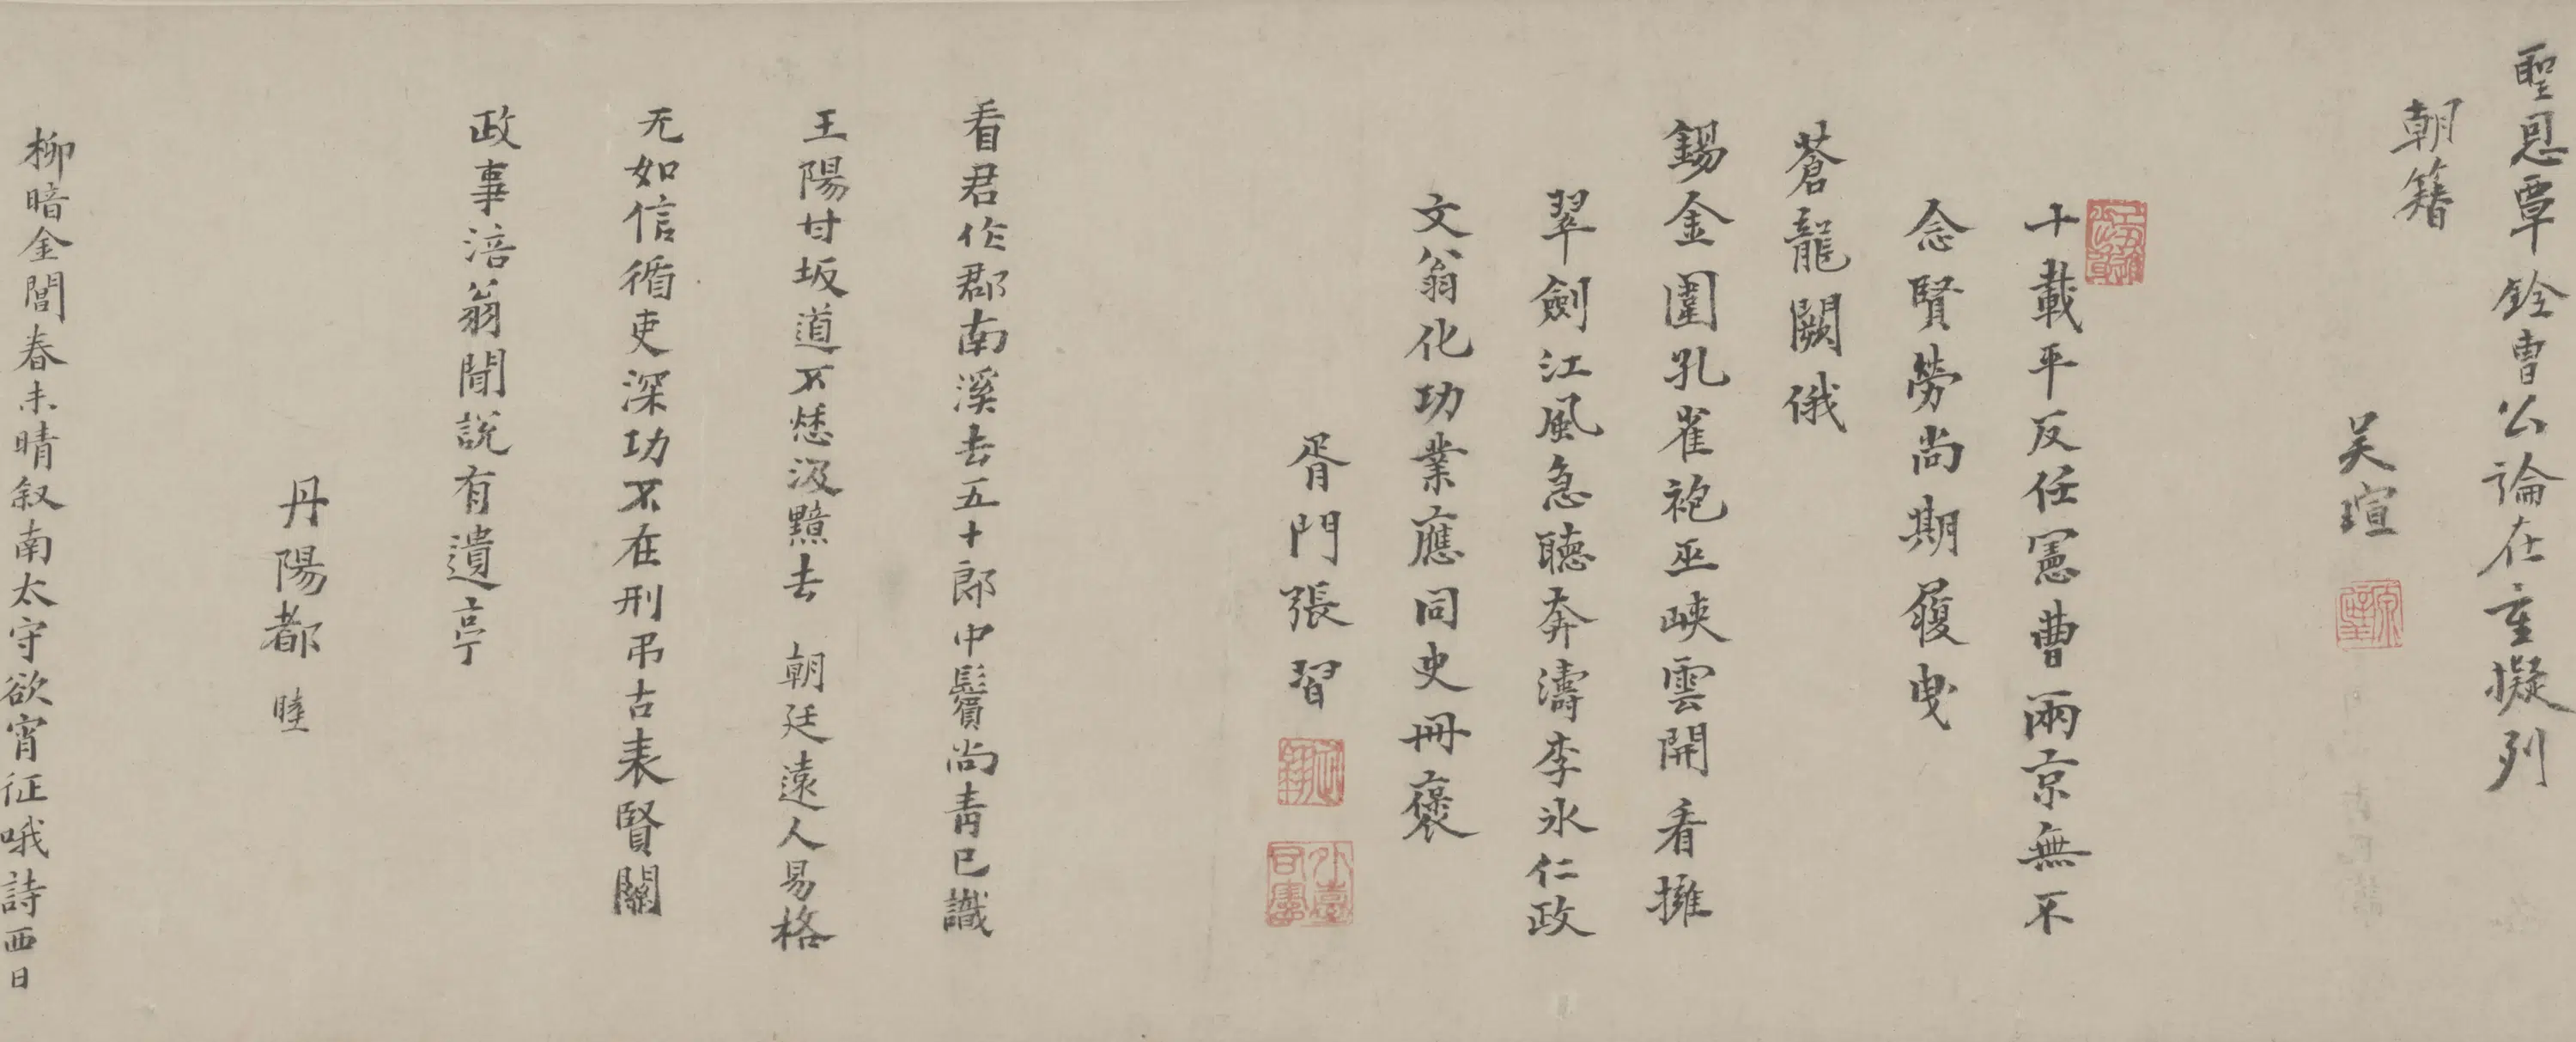 聖恩覃銓曹公論在重擬列
朝籍
吴瑄
十載平反任憲曹兩京無不
念賢勞尚期履曳
蒼龍闕俄
錫金圍孔雀袍巫峽雲開看擁
翠劍江風急聽奔濤李氷仁政
文翁化功業應同史冊褒
胥門張習
看君作郡南溪去五十郎中鬢尚青已識
王陽甘坂道不恁汲黯去朝廷遠人易格
无如信循吏深功不在刑弔古表賢關
政事涪翁聞説有遺亭
丹陽都睦
柳暗金閶春未晴叙南太守欲宵征哦詩西日